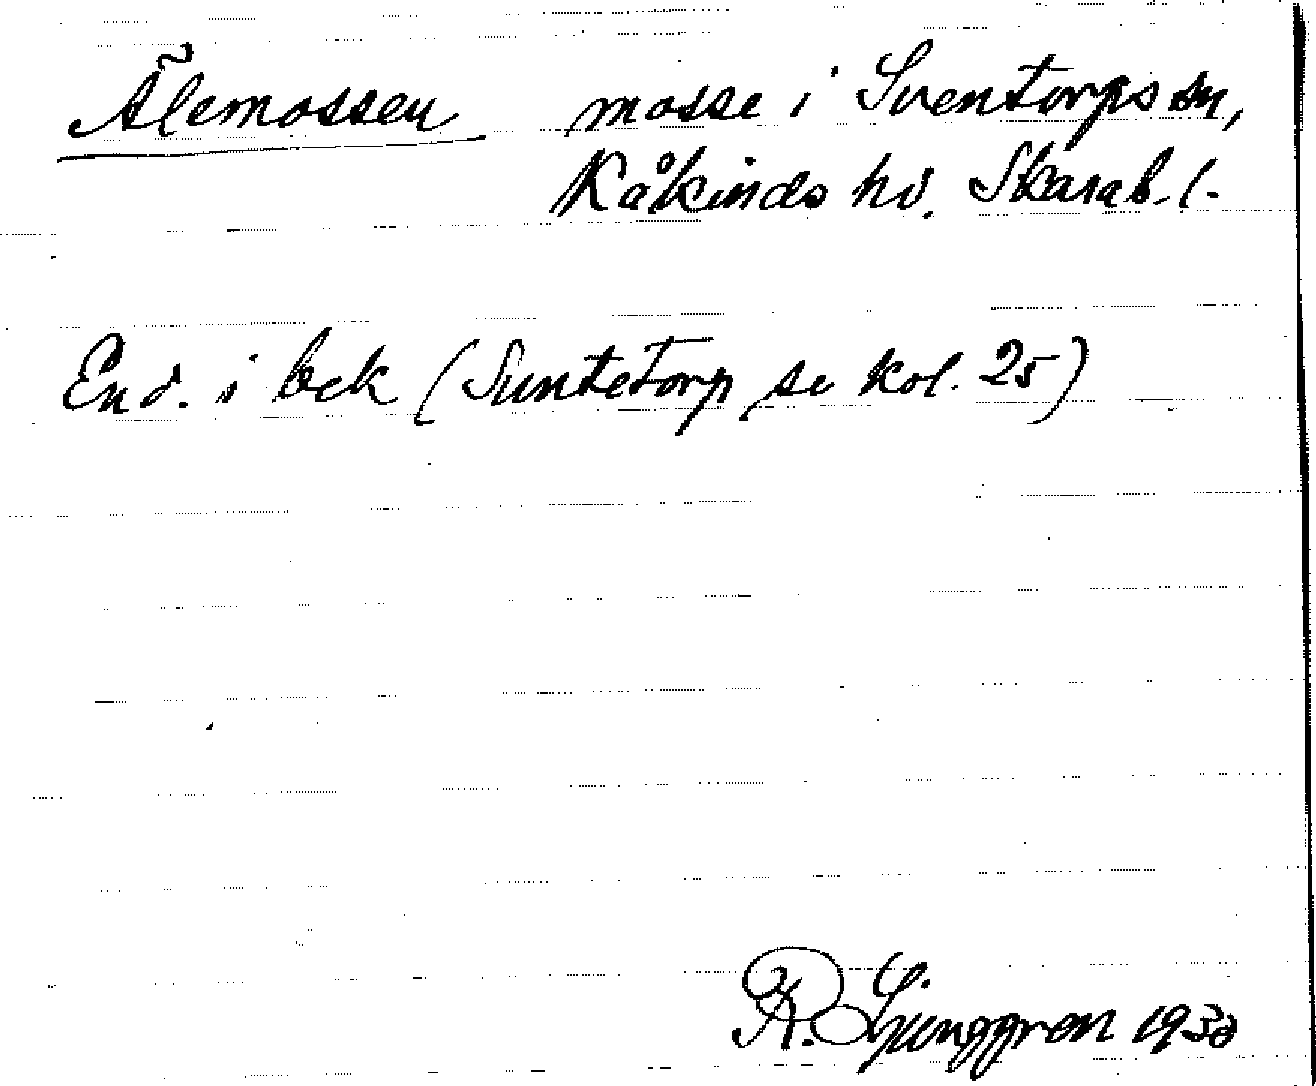 Älemossen mosse i Sventorps sn,
Kåkinds hd. Skarab. l.
End. i bek (Suntetorp se kol. 25)
R. Ljunggren 1930